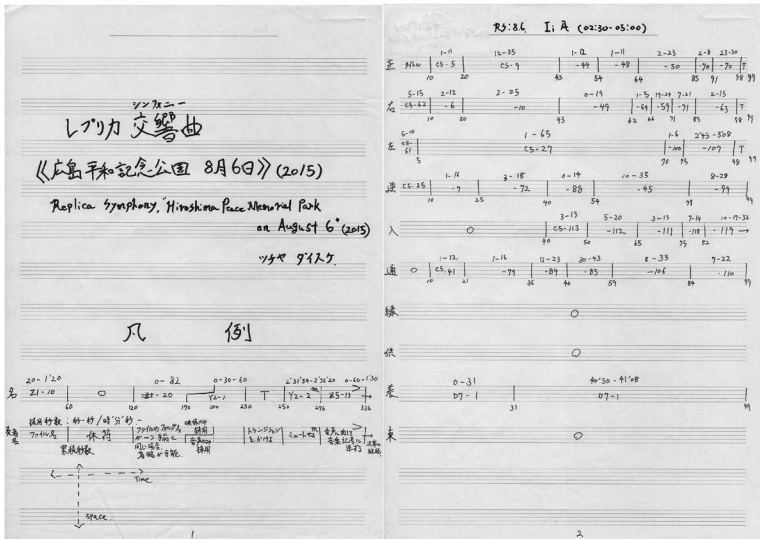 シンフォニー
レプリカ 交響曲
《広島平和記念公園 8月6日》(2015)
Replica Symphony, "Hiroshima Peace Memorial Park
on August 6" (2015)
ツチヤ ダイスケ.
凡 例
20-1'20 0-82 0-30-60 2'31'34-2'32'20 0-60-1'30
名 Z1-10 ○ Y2-1 T Y2-2 m Z5-13
60 120 170 200 230 250 276 336
採用秒数:秒-秒/時'分'秒.-
ファイル名 休符
累積秒数
Time
space.
1
RS:8.6. I; A (02:30-05:00)
1-11 12-35 1-12 1-11 2-23 2-8 23-30
C5-5 C5-9 -44 -48 -50 -70 -70 T
10 20 43 54 64 85 91 98 99
5-15 2-12 2-25 0-19 1-5 19-24 7-21 2-15
右 C5-62 -6 -10 -49 -69 -59 -71 -63 T
10 20 43 62 66 71 85 98 99
5-10 1-65 1-6 2'45-308
左 C5-61 C5-27 -100 -107 T
5 70 75 98 99
1-16 3-18 0-14 10-35 8-28
C5-25 -7 -72 -88 -45 -99
10 25 40 54 99
3-13 5-20 3-13 7-14 10-17-32
入 ○ C5-113 -112 -111 -118 -119 →
40 50 65 75 82
1-12 1-16 12-23 30-43 8-33 7-22
通 ○ C5-41 -79 -84 -85 -106 -110
10 21 36 46 59 84 99
縁 ○
供 ○
0-31 40'50-41'08
巻 D7-1 D7-1
31 99
東 ○
2